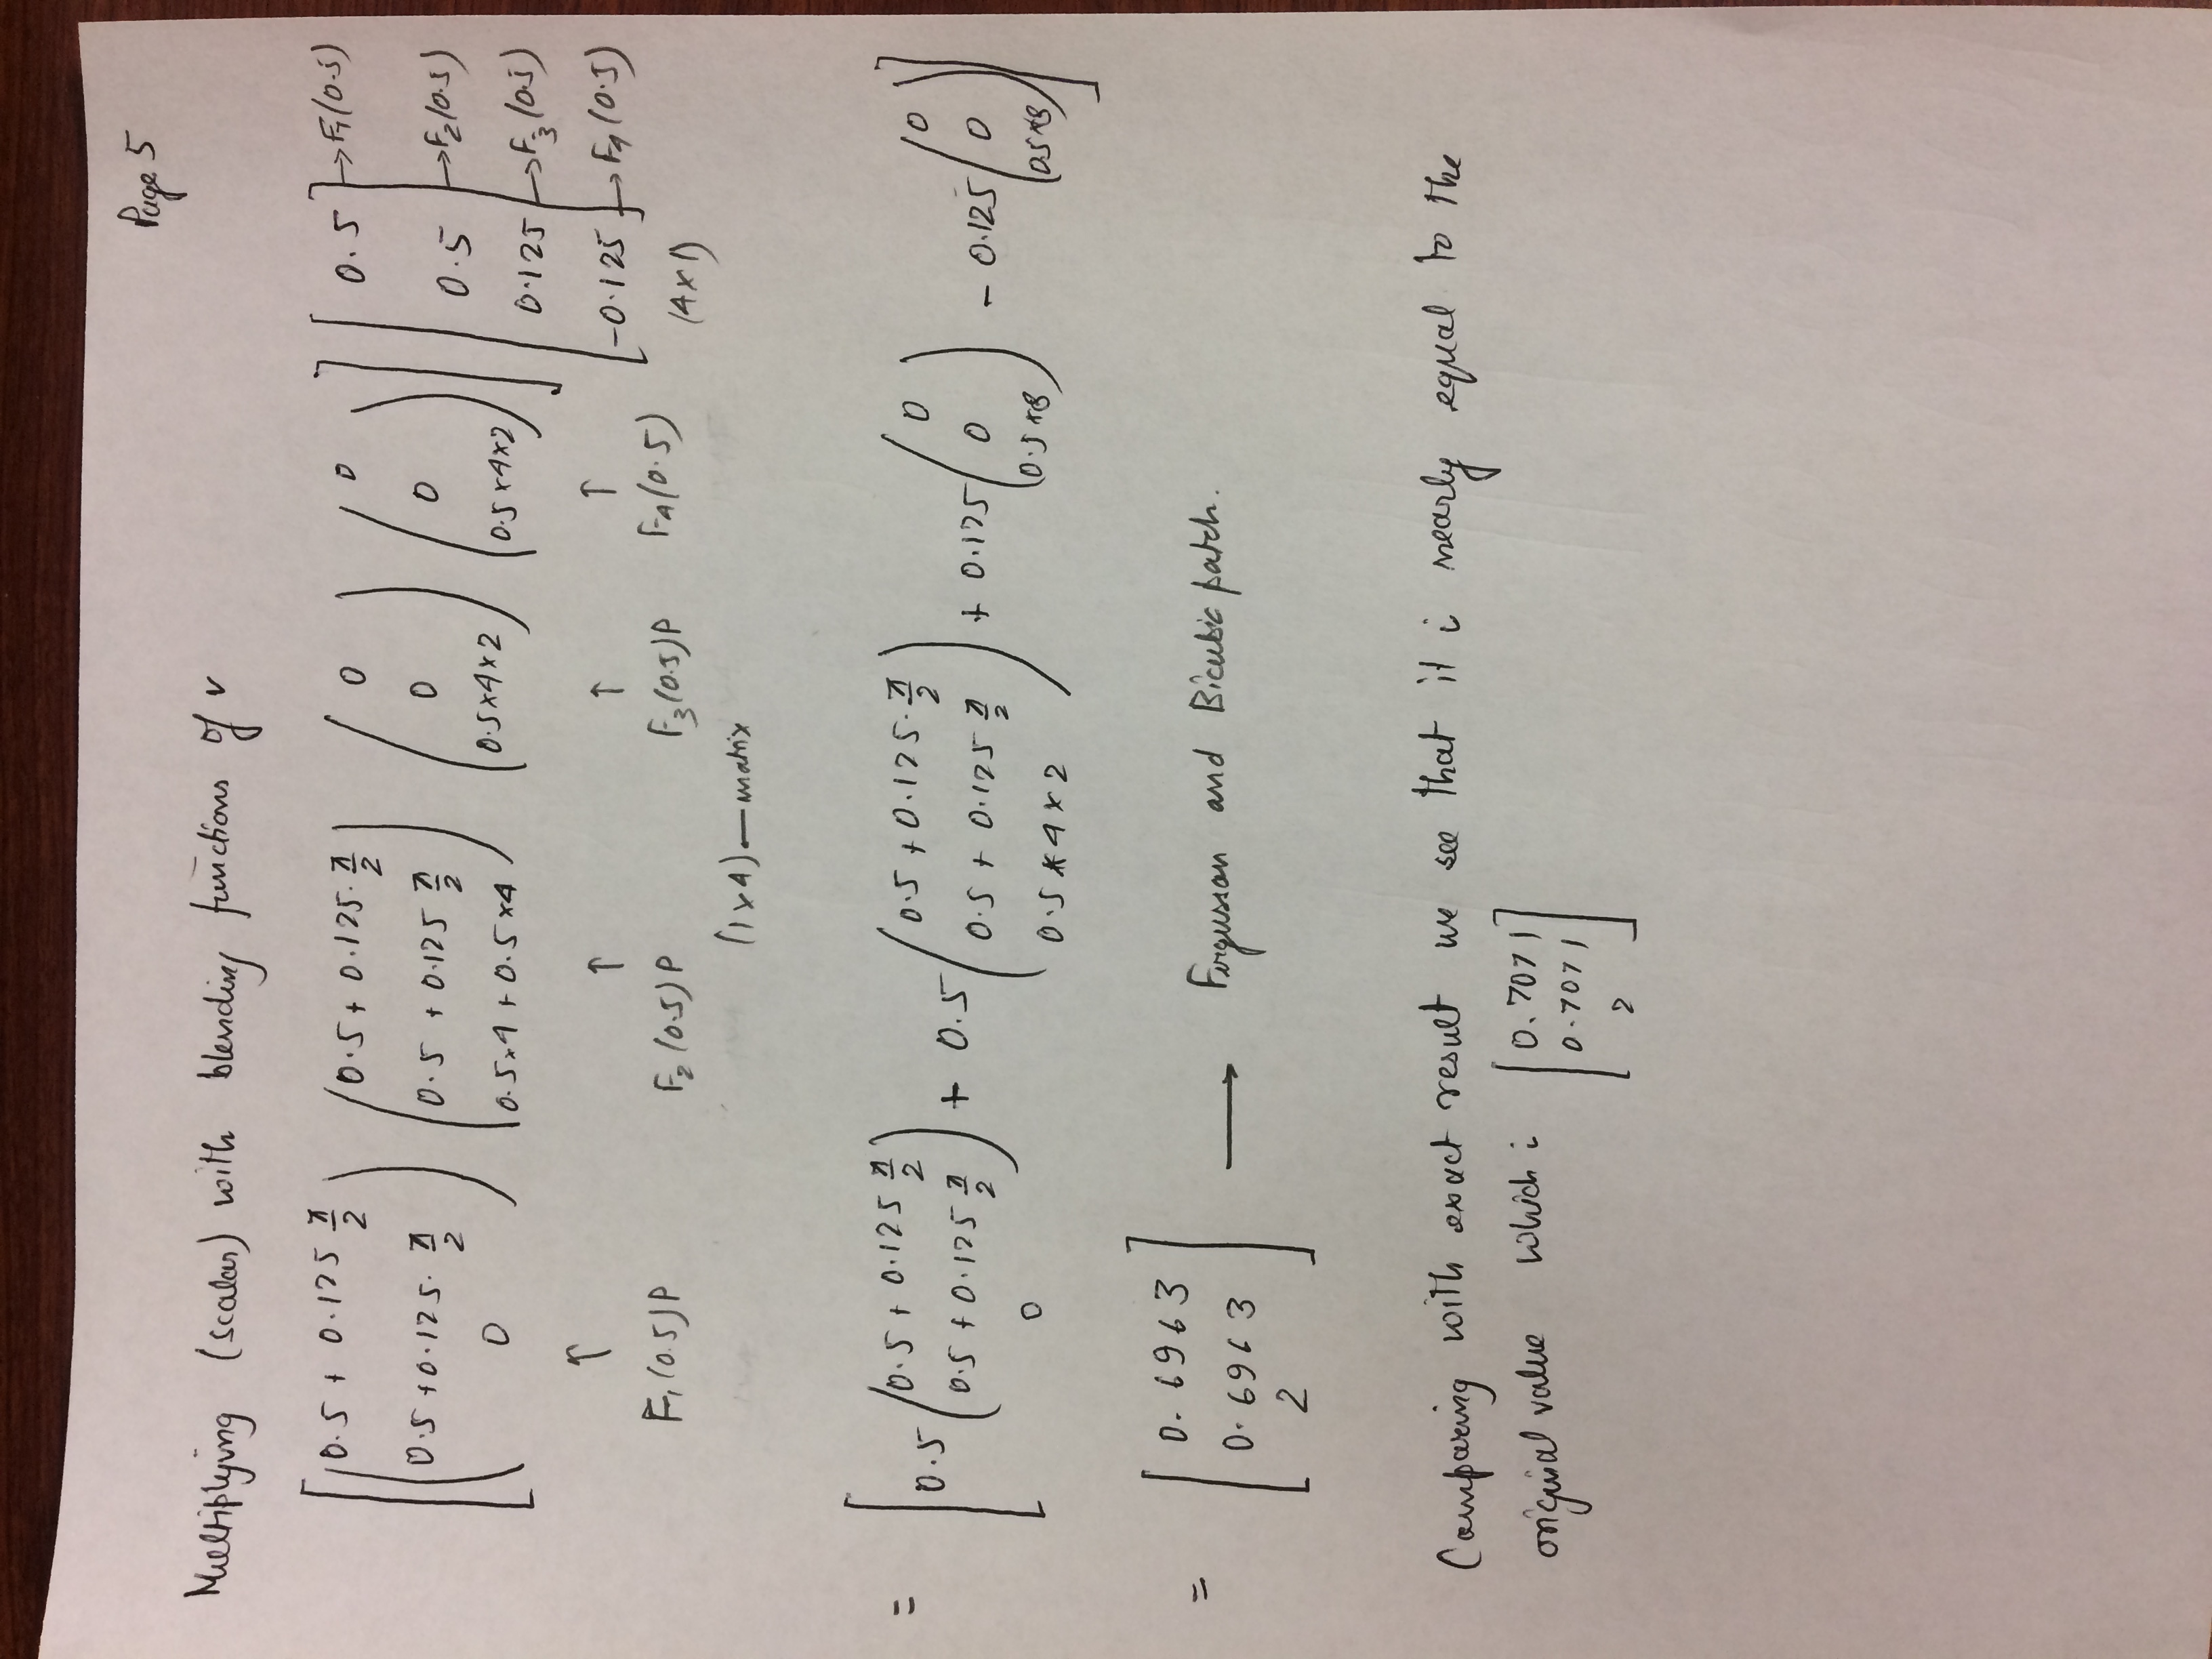 Page 5
Multiplying (scalar) with blending functions of v
[ (0.5 + 0.125 π/2, 0.5 + 0.125. π/2, 0) (0.5 + 0.125. π/2, 0.5 + 0.125 π/2, 0.5×4 + 0.5×4) (0, 0, 0.5×4×2) (0, 0, 0.5×4×2) ] [ 0.5 → F1(0.5), 0.5 → F2(0.5), 0.125 → F3(0.5), -0.125 → F4(0.5) ]
↑ ↑ ↑ ↑
F1(0.5)P F2(0.5)P F3(0.5)P F4(0.5) (4×1)
(1×4) ← matrix
= [ 0.5 (0.5 + 0.125 π/2, 0.5 + 0.125 π/2, 0) + 0.5 (0.5 + 0.125. π/2, 0.5 + 0.125 π/2, 0.5 × 4 × 2) + 0.125 (0, 0, 0.5×8) - 0.125 (0, 0, 0.5×8) ]
= [ 0.6963, 0.6963, 2 ] → Fergusson and Bicubic patch.
Comparing with exact result we see that it is nearly equal to the
original value which is [ 0.7071, 0.7071, 2 ]